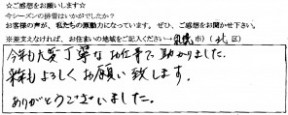 ☆ご感想をお願いします☆
今シーズンの排雪はいかがでしたか？
お客様の声が、私たちの振動力になっています。ぜひ、ご感想をお聞かせ下さい。
※差支えなければ、お住まいの地域をご記入ください→（札幌市）（北区）
今年も大変丁寧なお仕事で助かりました。
来年もよろしくお願い致します。
ありがとうございました。